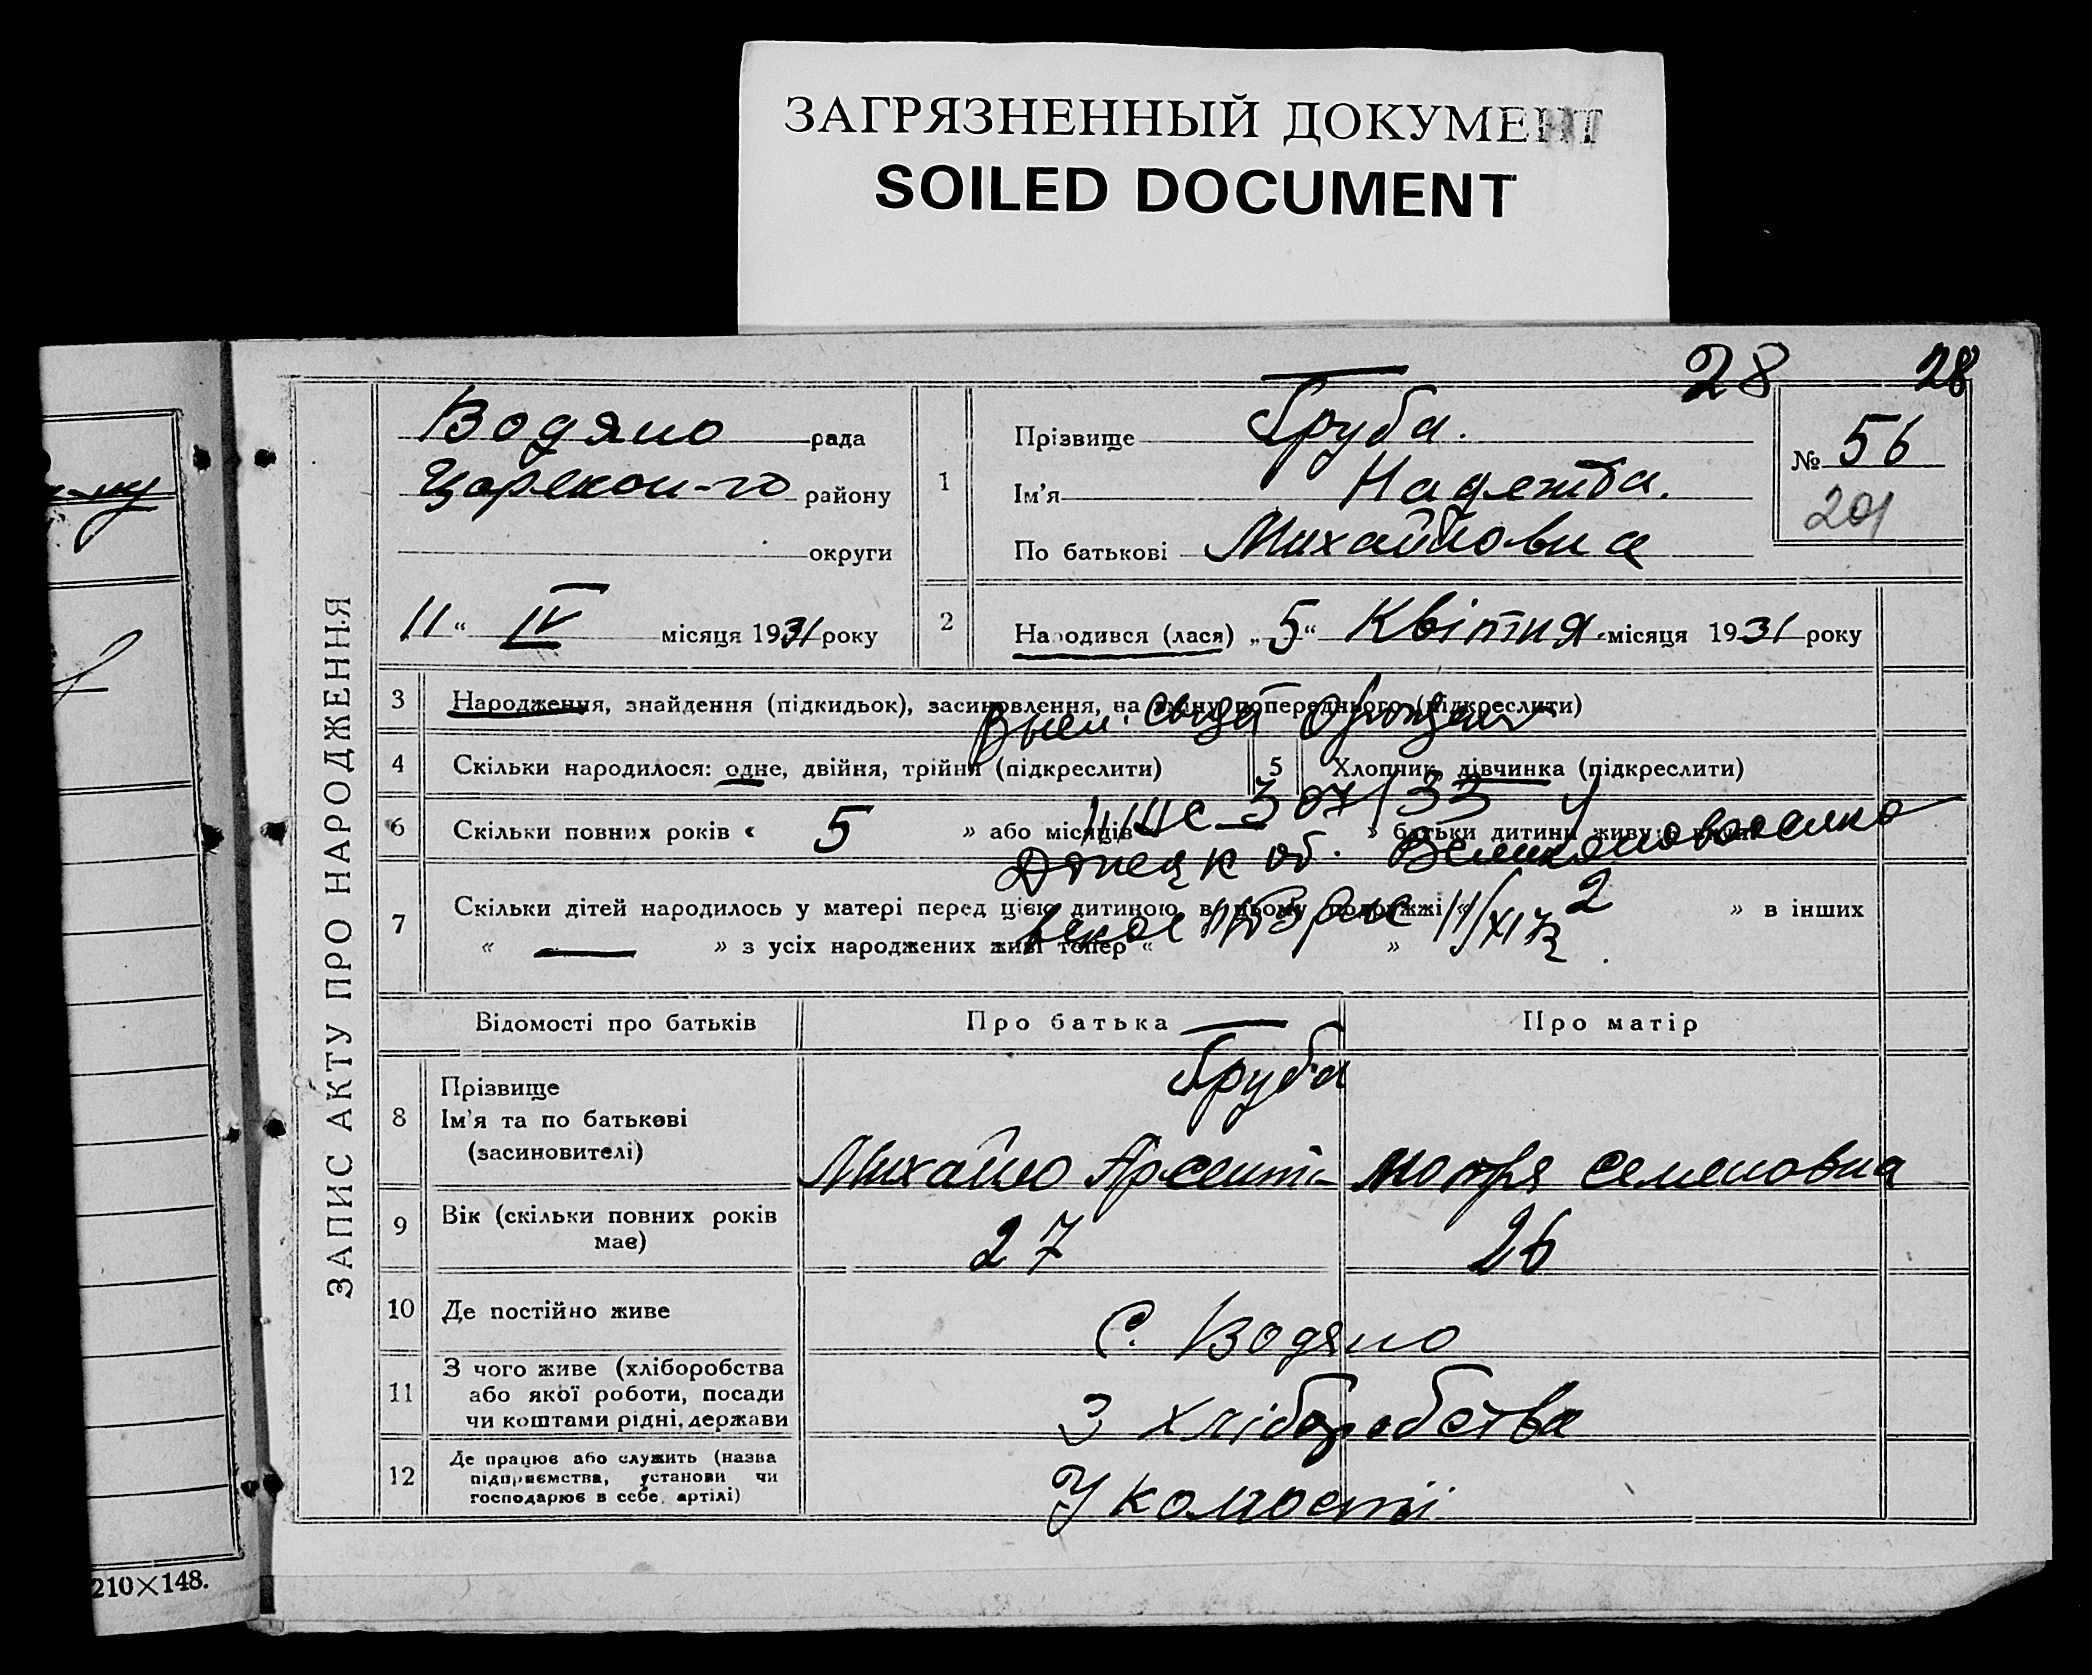 ЗАГРЯЗНЕННЫЙ ДОКУМЕНТ
SOILED DOCUMENT
28 28
ЗАПИС АКТУ ПРО НАРОДЖЕННЯ
Водяно рада
района району
округи
11 " IV місяця 1931 року
1 Прізвище Груба.
Ім'я Надежда.
По батькові Михайловна
№ 56
201
2 Народився (лася) „5" Квітня місяця 1931 року
3 Народження, знайдення (підкидьок), засиновлення, на зміну попереднього (підкреслити)
4 Скільки народилося: одне, двійня, трійня (підкреслити) 5 Хлопчик, дівчинка (підкреслити)
6 Скільки повних років « 5 » або місяців » батьки дитини живуть
307133
Донецк об.
7 Скільки дітей народилось у матері перед цією дитиною в цьому подружжі « 2 » в інших
« — » з усіх народжених живі тепер « »
Відомості про батьків Про батька Про матір
8 Прізвище
Ім'я та по батькові
(засиновителі)
Груба
Михайло Арсенті- Мотря Семеновна
9 Вік (скільки повних років має) 27 26
10 Де постійно живе С. Водяно
11 З чого живе (хліборобства
або якої роботи, посади
чи коштами рідні, держави
З хліборобства
12 Де працює або служить (назва
підприємства, установи чи
господарює в себе, артілі)
У
210×148.